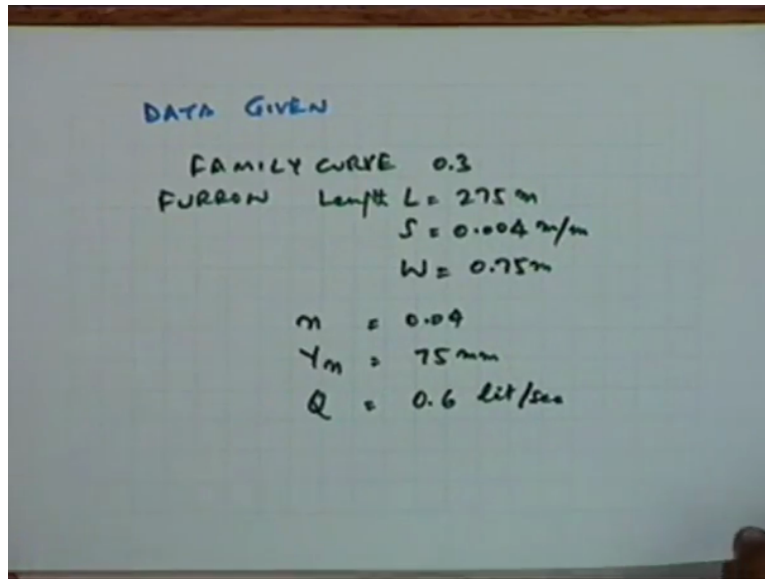 DATA GIVEN
FAMILY CURVE 0.3
FURROW Length L = 275 m
S = 0.004 m/m
W = 0.75m
n = 0.04
Yn = 75 mm
Q = 0.6 lit/sec